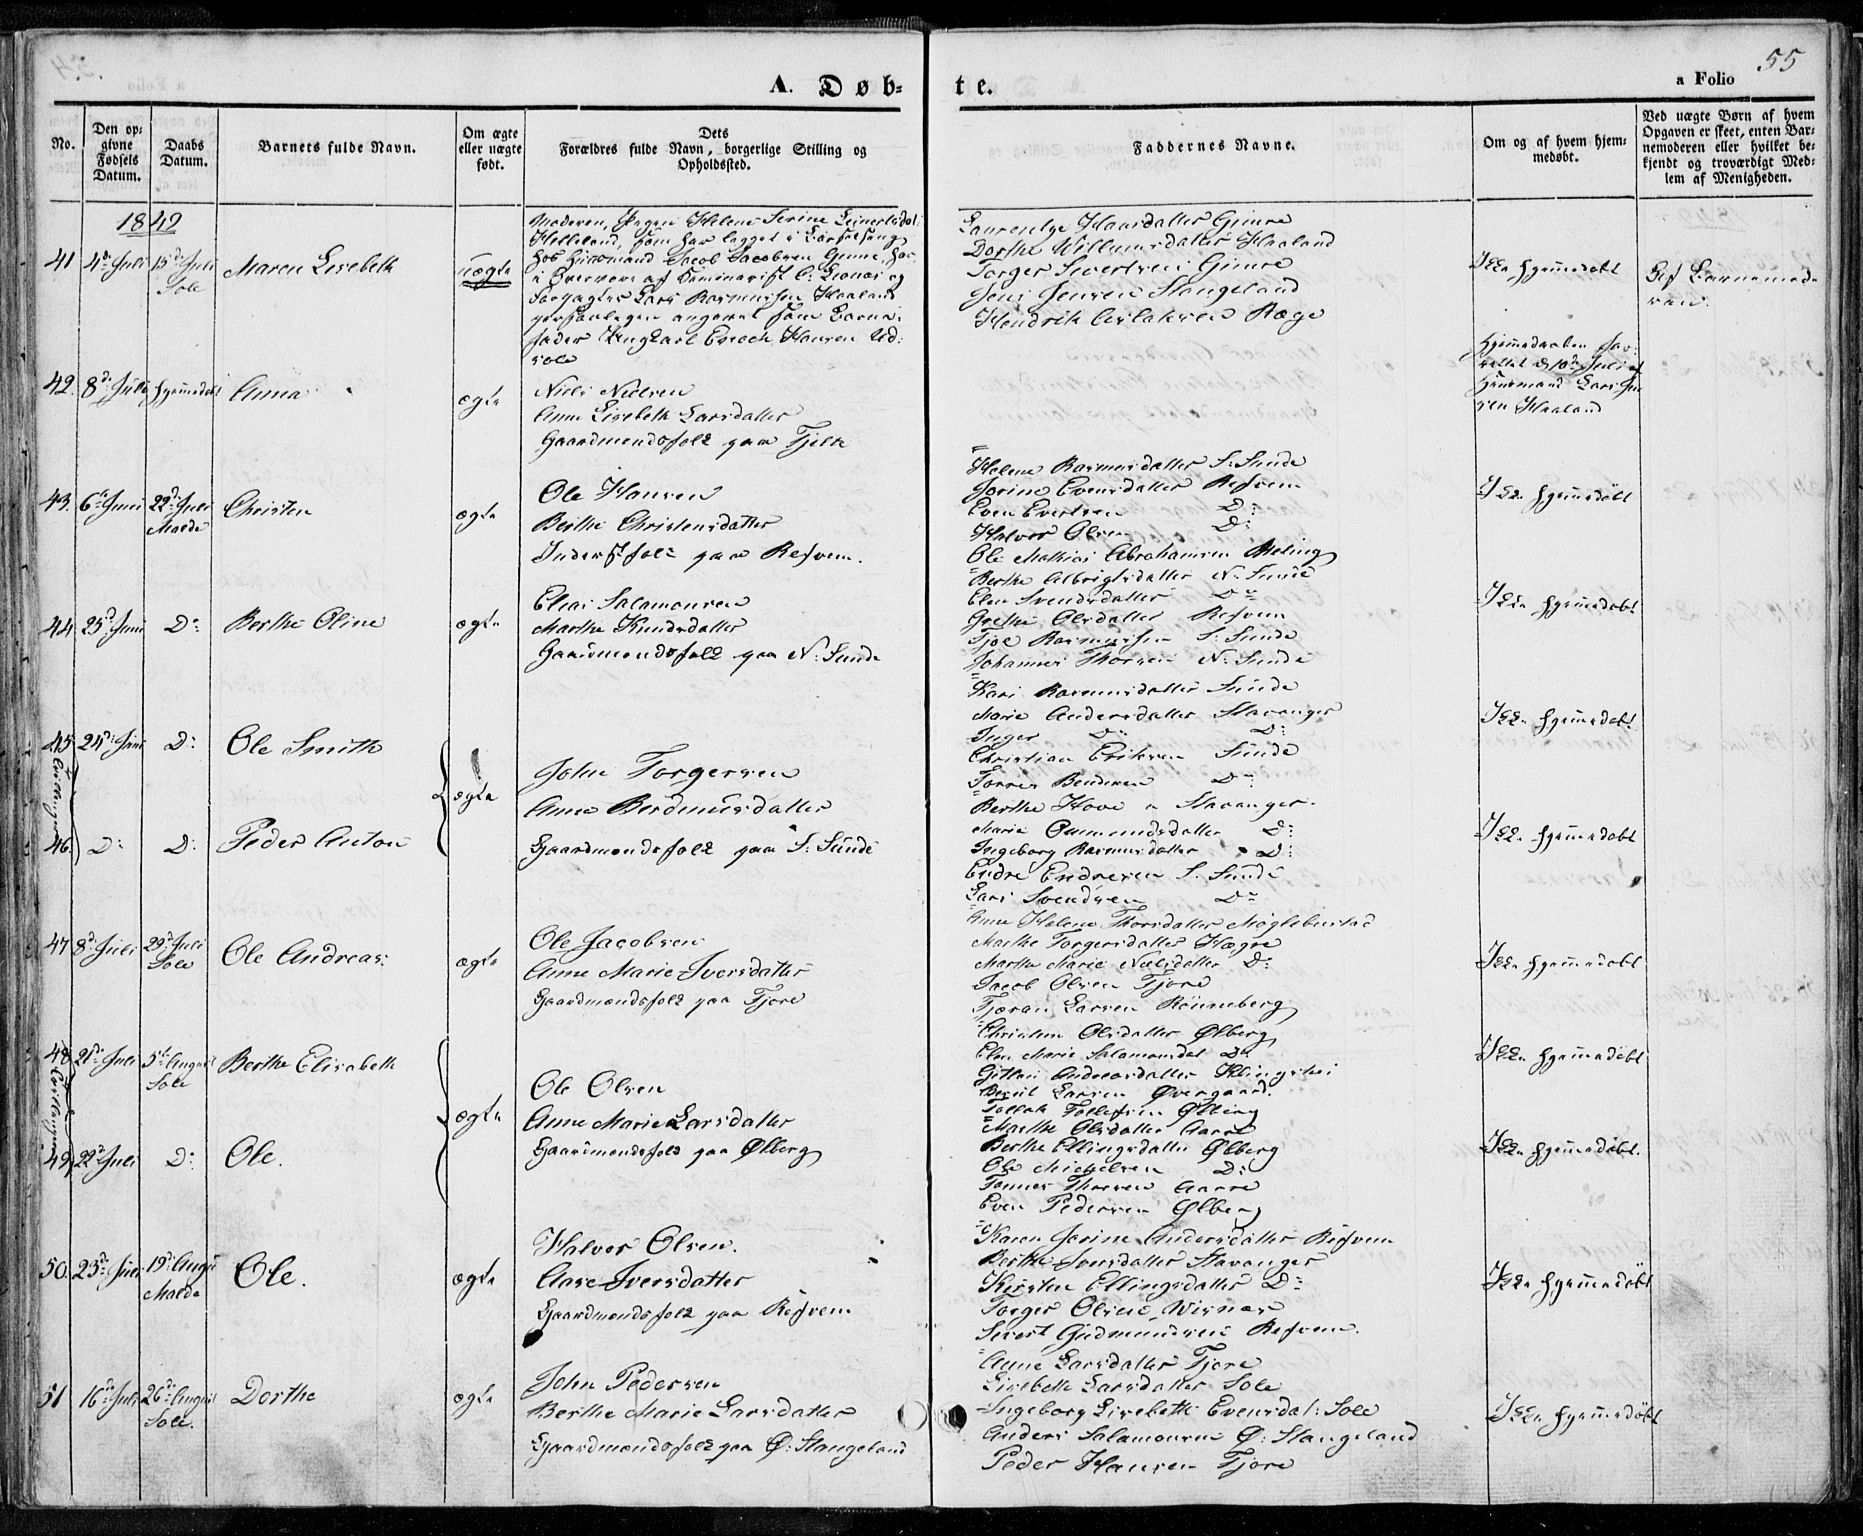 55
A. Døb-
te.
a Folio
No.
Den op-
givne
Fødsels
Datum.
Daabs
Datum.
Barnets fulde Navn.
Om ægte
eller uægte
født.
Dets
Forældres fulde Navn, borgerlige Stilling og
Opholdssted.
Faddernes Navne.
Om og af hvem hjem-
medøbt.
Ved uægte Børn af hvem
Opgaven er skeet, enten Bar-
nemoderen eller hvilket be-
kjendt og troværdigt Med-
lem af Menigheden.
1849
41 4de Juli 15de Juli
Sole
Maren Lisebeth
uægte
Moderen, Pigen Helene Serine
Helleland, som har ligget i Barselseng
hos Huusmand Jacob Jacobsen Gimre, har
i Overvær af Seminarist og
Lars Rasmussen Haaland
angivet som Barne-
fader Ungkarl Enoch Hansen
sole
Laurentze Hansdatter Gimre
Dorthe Willumsdatter Haaland
Torger Sivertsen Gimre
Jens Jensen Stangeland
Hendrik Aslaksen Ræge
Ikke hjemmedøbt
Af Barnemode-
ren.
42. 8de Juli hjemmedøbt Anna
ægte
Niels Nielsen
Anne Lisebeth Larsdatter
Gaardmandsfolk paa Tjelte
Hjemmedaaben for-
rettet d. 10de Juli af
Huusmand Lars
Haaland
43. 6te Juni 22de Juli
Malde
Christen
ægte
Ole Hansen
Berthe Christensdatter
Inderstfolk paa Refsem.
Helene Rasmusdatter S: Sunde
Jorine Evensdatter Refsem
Even Evertsen Do
Halvor Olsen Do
Ole Mathias Abrahamsen Meling
Ikke hjemmedøbt
44. 25de Juni Do Berthe Oline
ægte
Elias Salamonsen
Marthe Knudsdatter
Gaardmandsfolk paa N: Sunde
Berthe Albrigtsdatter N: Sunde
Elen Svendsdatter Do
Grethe Olsdatter Refsem
Tjøl Rasmussen S: Sunde
Johannes Thorsen N: Sunde
Ikke hjemmedøbt
45 24de Juni Do Ole Smith
Tvillinger
46. Do Do Peder Anton
ægte
John Torgersen
Anne Berdinusdatter
Gaardmandsfolk paa S: Sunde
Kari Rasmusdatter Sunde
Marie Andersdatter Stavanger
Inger Do Do
Christian Eriksen Sunde
Torres Bendsen Do
Ikke hjemmedøbt.
Berthe Hove Stavanger.
Marie Ommundsdatter Do
Ingeborg Rasmusdatter Do
Endre Endresen S. Sunde
Lars Svendsen Do
Ikke hjemmedøbt
47 8de Juli 29de Juli
Sole
Ole Andreas.
ægte
Ole Jacobsen
Anne Marie Iversdatter
Gaardmandsfolk paa Tjore
Anne Helene Thorsdatter Møglebustad
Marthe Torgersdatter Hægre
Marthe Marie Nielsdatter Do
Jacob Olsen Tjore
Tjøran Larsen Rønneberg
Ikke hjemmedøbt
48 21de Juli 5te August
Sole
Berthe Elisabeth
Tvillinger
49 22de Juli Do Ole.
ægte
Ole Olsen
Anne Marie Larsdatter
Gaardmandsfolk paa Ølberg
Christine Olsdatter Ølberg
Elen Marie Salamonsdat. Do
Gitlen Andreasdatter Klingshei
Berul Larsen Øvergaard.
Tollak Tollefsen Ølberg
Ikke hjemmedøbt
Marthe Olsdatter Aarre
Berthe Ellingsdatter Ølberg
Ole Michelsen Do
Tønnes Thorsen Aarre
Even Pedersen Ølberg
Ikke hjemmedøbt.
50. 23de Juli 19de Augu
Malde
Ole.
ægte
Halvor Olsen.
Aase Iversdatter
Gaardmandsfolk paa Refsem
Karen Jorine Andersdatter Refsem
Berthe Iversdatter Stavanger
Kirsten Ellingsdatter Do
Torger Olsen Wisnæs
Sivert Gudmundsen Refsem.
Ikke hjemmedøbt
51 16de Juli 26de August
Sole.
Dorthe
ægte
John Pedersen
Berthe Marie Larsdatter
Gaardmandsfolk paa Ø: Stangeland
Anne Larsdatter Tjore
Lisebeth Larsdatter Sole
Ingeborg Lisebeth Evensdat: Sole
Anders Salamonsen Ø: Stangeland
Peder Hansen Tjore
Ikke hjemmedøbt